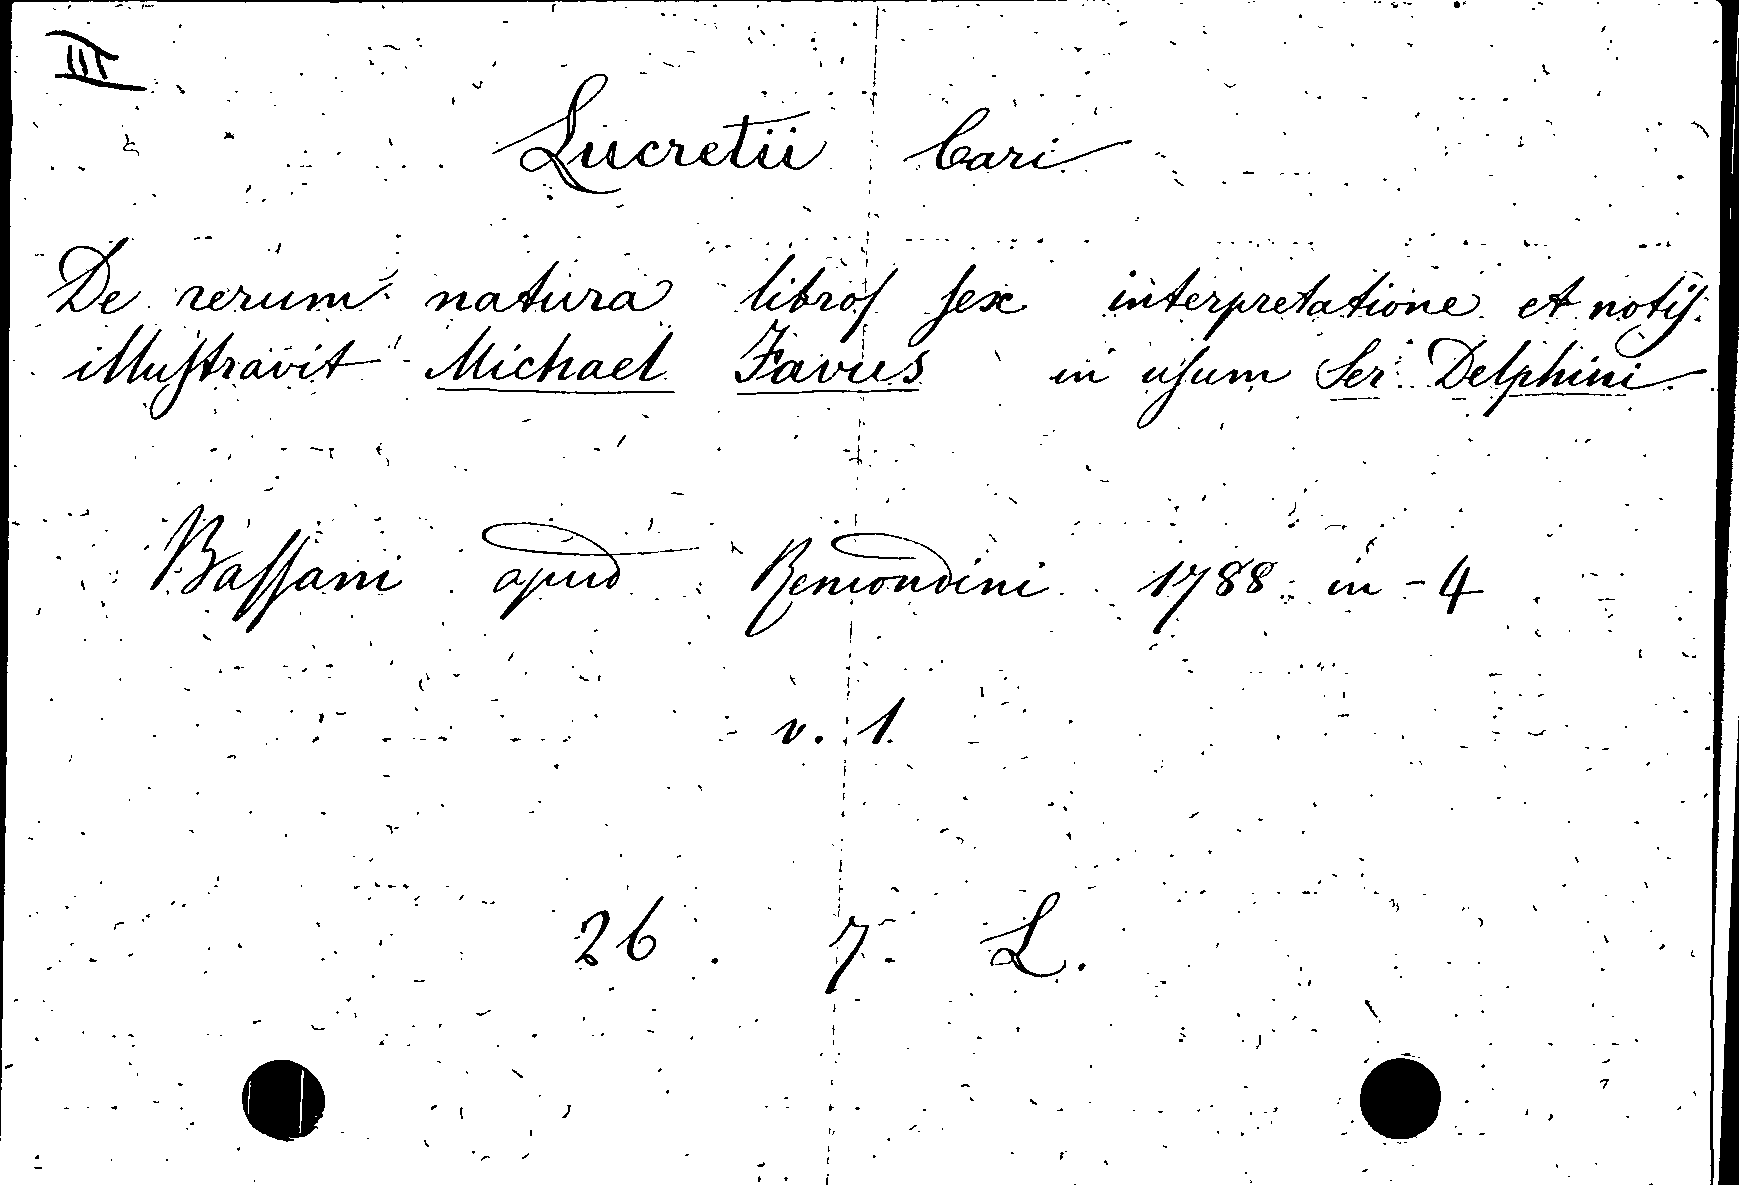 III
Lucretii Cari
De rerum natura libros sex interpretatione et notis.
illustravit Michael Favus in usum Ser. Delphini
Bassani apud Remondini 1788 in - 4
v. 1.
26. 7. L.